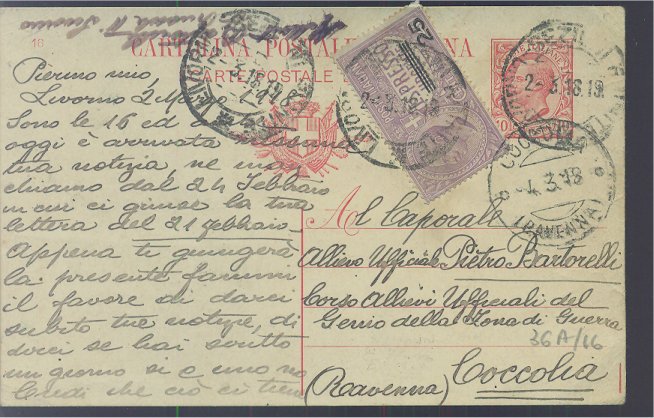 16
CARTOLINA POSTALE ITALIANA
(CARTE POSTALE
ESPRESSO
25
LIVORNO
2-3.18.19
COCCOLIA
4.3.18
(RAVENNA)
Pierino mio,
Livorno 2 Marzo
Sono le 16 ed
oggi è arrivata nessuna
tua notizia ne
chiamo dal 24 Febbraio
in cui ci giunse la tua
lettera del 21 febbraio.
Appena ti giungerà
la presente fammi
il favore di darci
subito tue notizie, di
dirci se hai scritto
un giorno si e uno no
Credi che ciò ci tiene
Al Caporale
Allievo Ufficiale Pietro Bartorelli
Corso Allievi Ufficiali del
Genio della Zona di Guerra
36A/16
(Ravenna) Coccolia